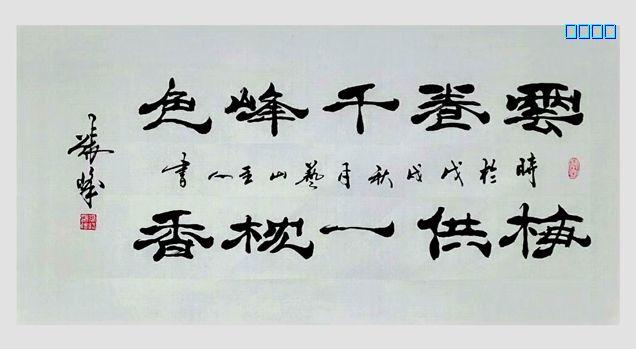 雲卷千峰色
時於戊戌秋月藝山主人書
梅供一枕香